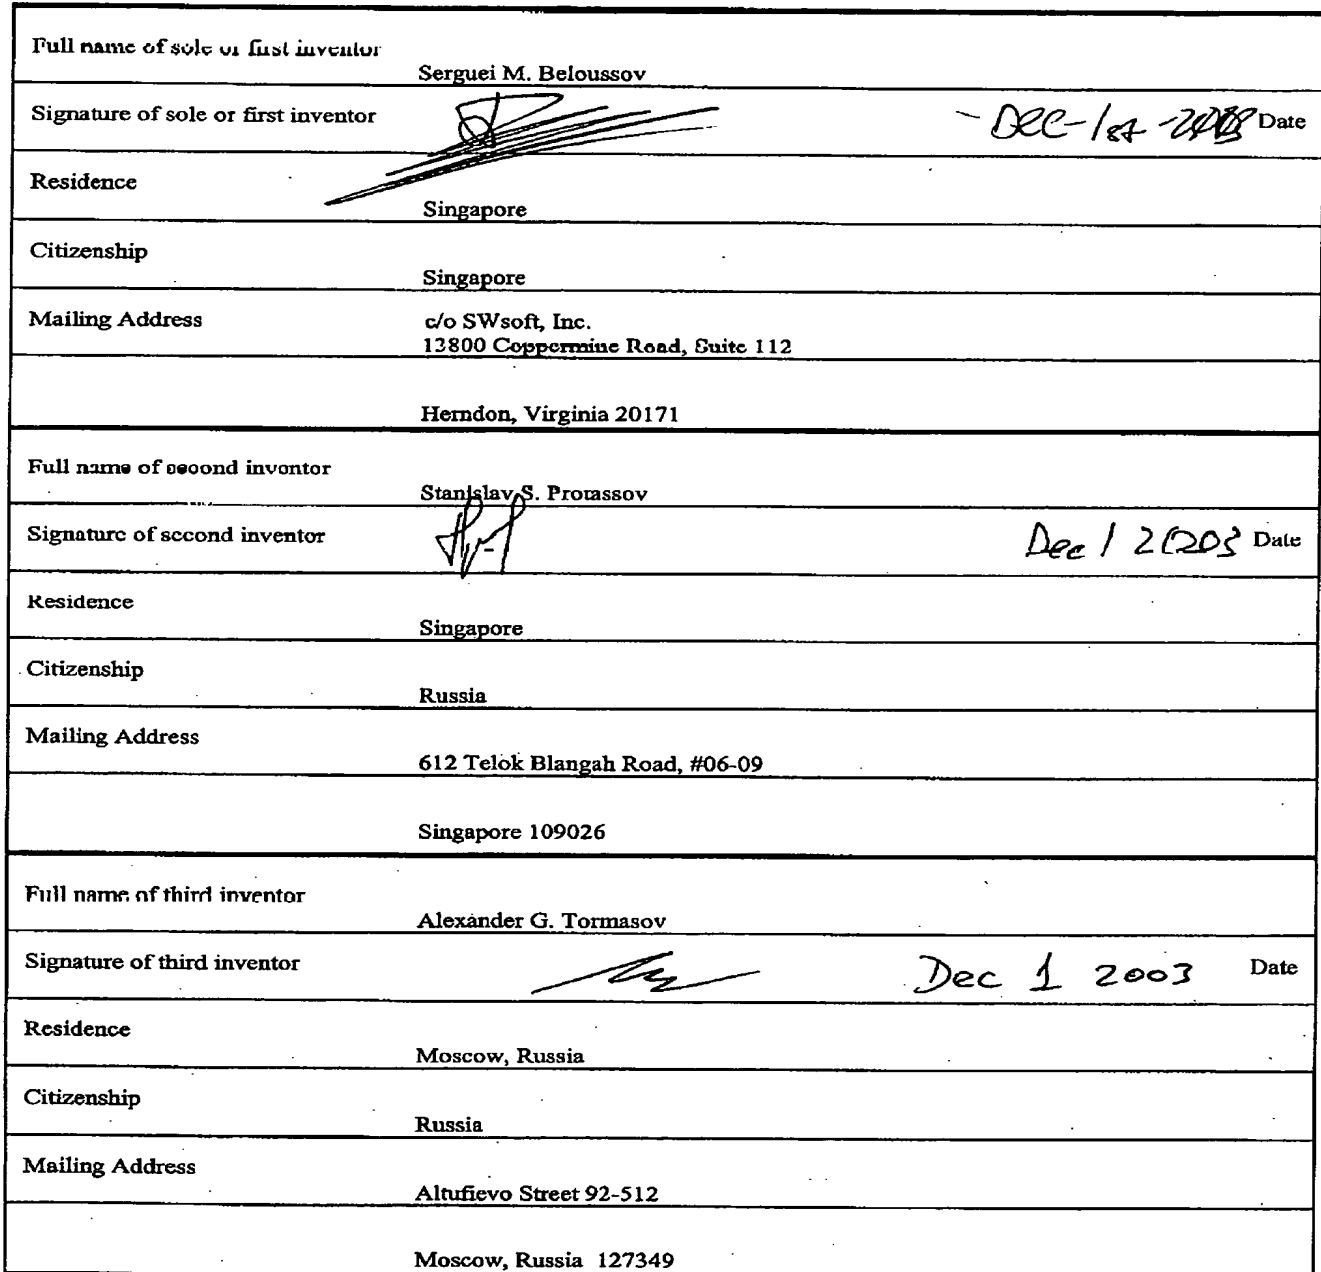 Full name of sole or first inventor
Serguei M. Beloussov
Signature of sole or first inventor - Dec-1st - Date
Residence
Singapore
Citizenship
Singapore
Mailing Address c/o SWsoft, Inc.
13800 Coppermine Road, Suite 112
Herndon, Virginia 20171
Full name of second inventor
Stanislav S. Protassov
Signature of second inventor Dec 1 2003 Date
Residence
Singapore
Citizenship
Russia
Mailing Address
612 Telok Blangah Road, #06-09
Singapore 109026
Full name of third inventor
Alexander G. Tormasov
Signature of third inventor Dec 1 2003 Date
Residence
Moscow, Russia
Citizenship
Russia
Mailing Address
Altufievo Street 92-512
Moscow, Russia 127349